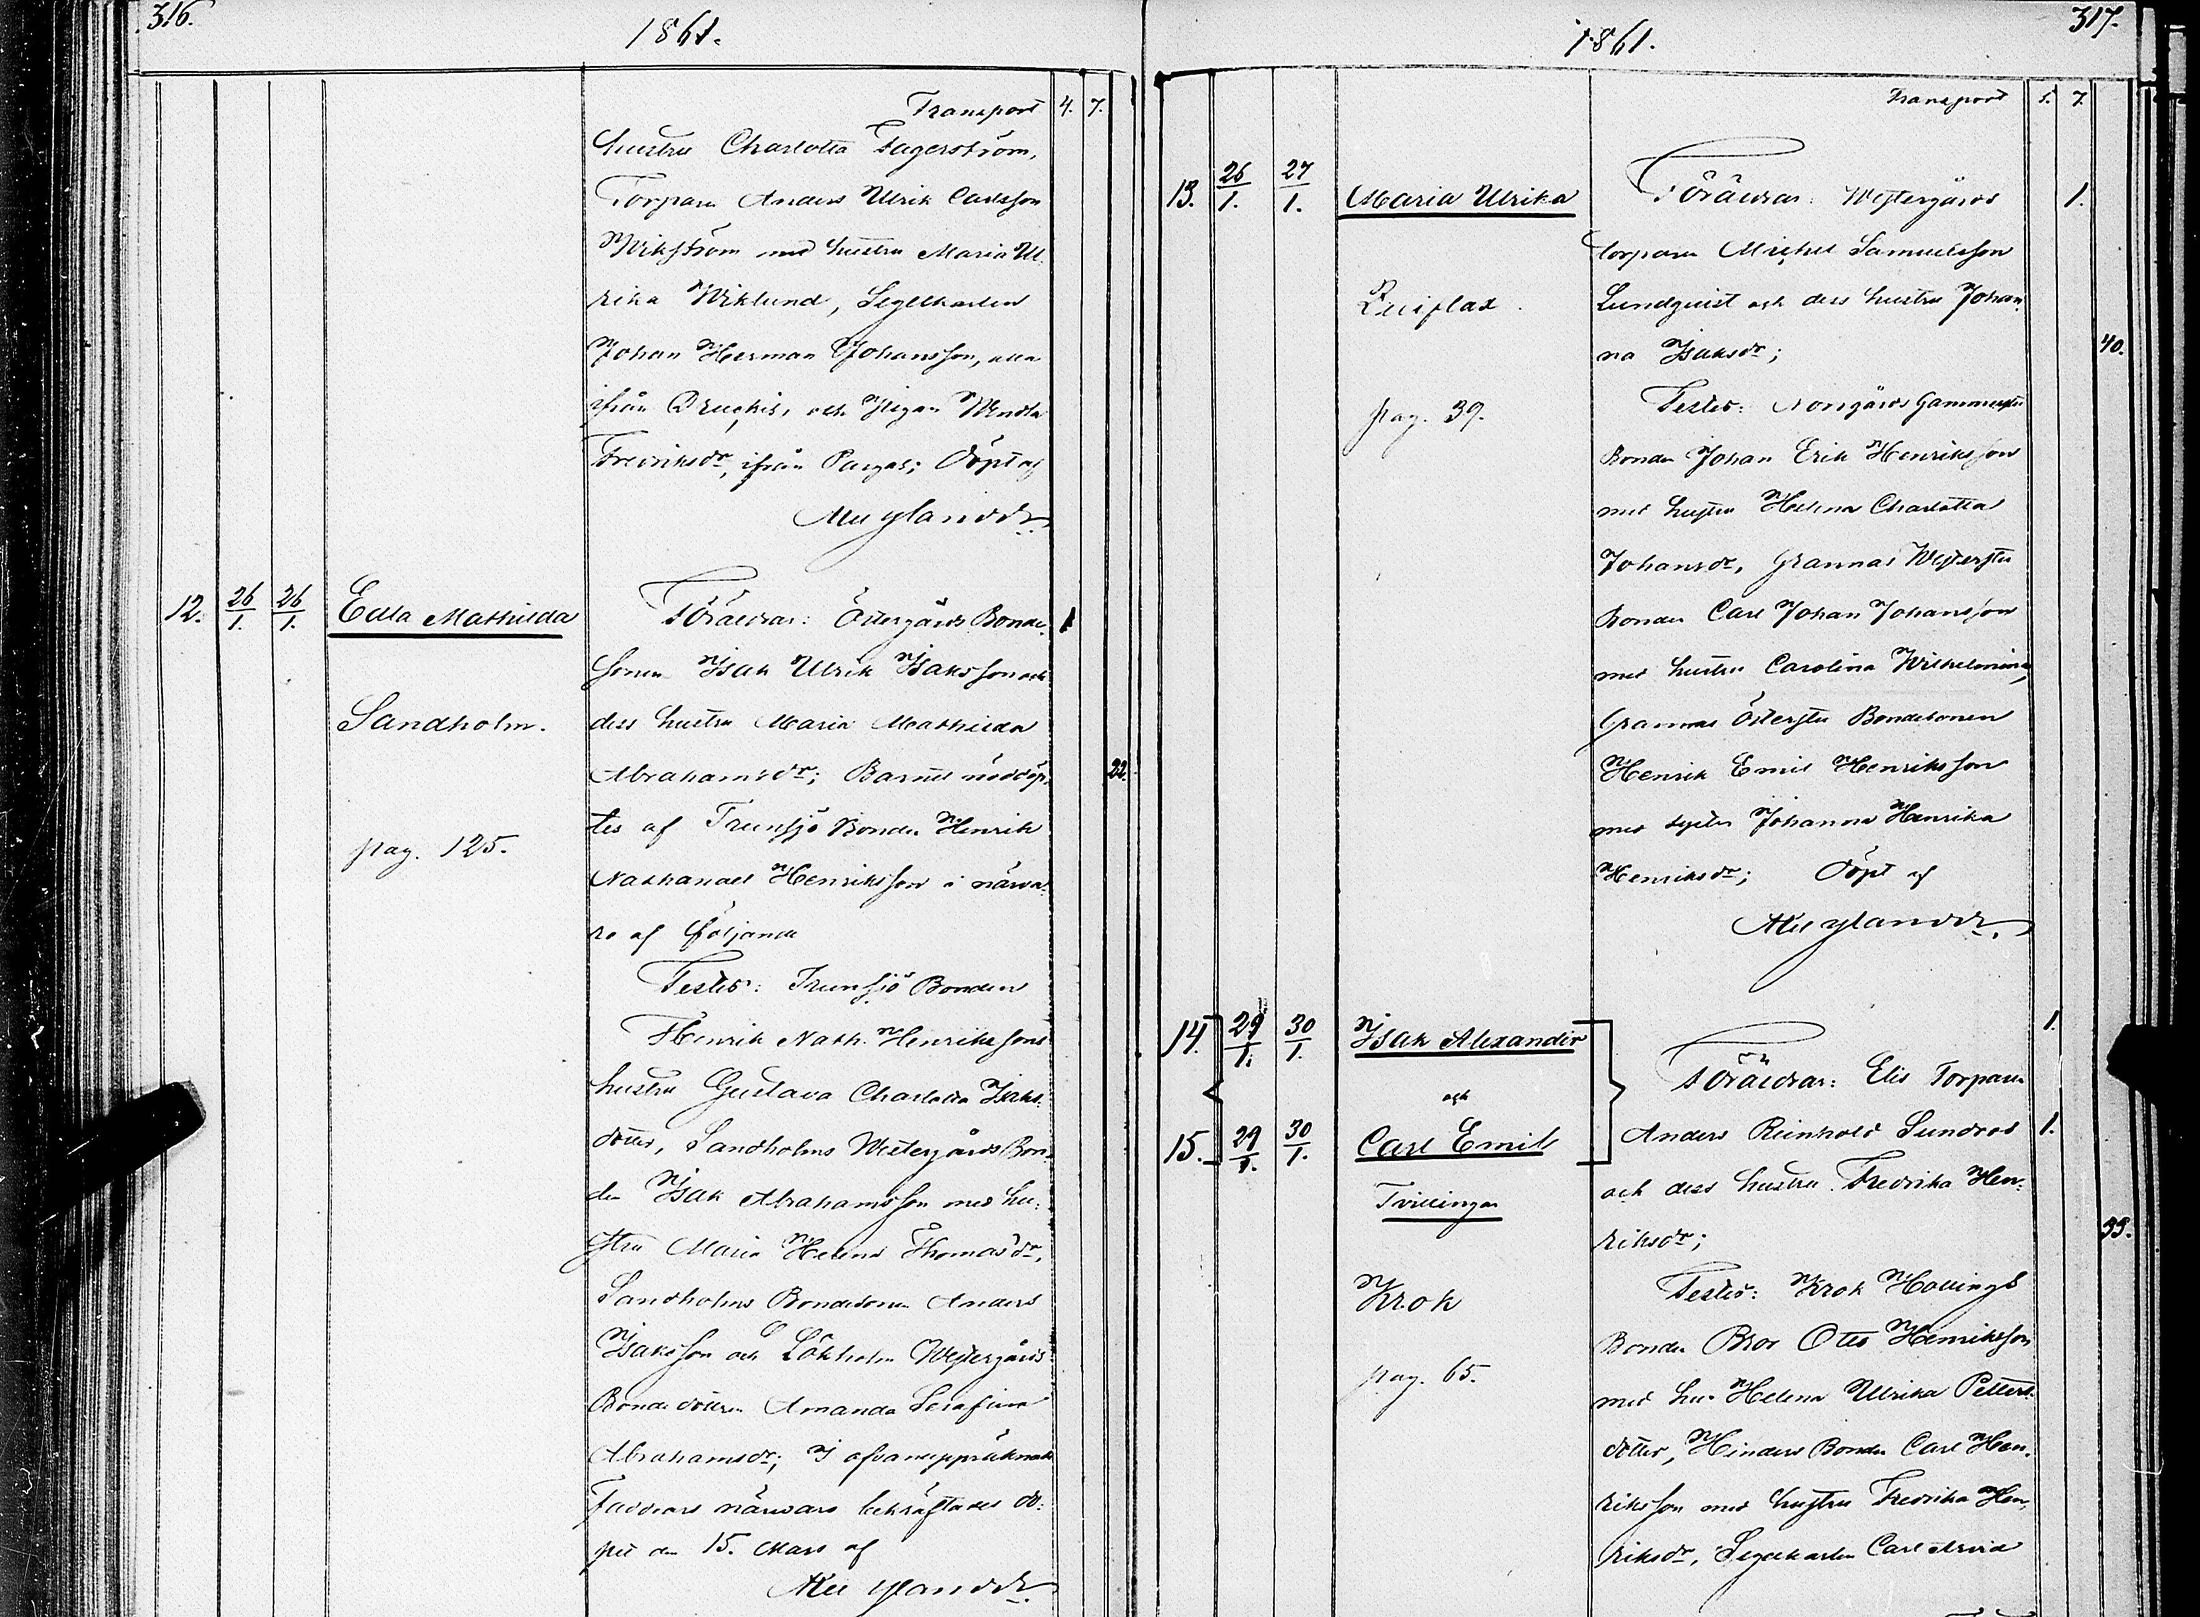 316.
1861.
Transport 4. 7.
hustru Charlotta Fagerström,
Torparn Anders Ulrik Carlsson
Wikström med hustru Maria Ul-
rika Wiklund, Segelkarlen
Johan Herman Johansson, alla
ifrån och Pigan Wendla
Fredriksdr, ifrån Pargas; Döpt af
12. 26/1. 26/1. Edla Mathilda Föräldrar: Östergårds Bonde- 1
sonen Isak Ulrik Isaksson och
Sandholm. dess hustru Maria Mathilda
Abrahamsdr; Barnet nöddöp- 22.
tes af Trunsjö Bonden Henrik
pag. 125.
Nathanael Henriksson i närva-
ro af följande
Testes: Trunsjö Bonden
Henrik Nath. Henrikssons
hustru Gustava Charlotta Isaks-
dotter, Sandholms Westergårds Bon-
den Isak Abrahamsson med hu-
stru Maria Helena Thomasdr,
Sandholms Bondesonen Anders
Isaksson och Lökholm Westergårds
Bondedottren Amanda Serafina
Abrahamsdr; I ofvanuppräknade
Faddrars närvaro bekräftades do-
pet den 15. Mars af
317.
1861.
Transport 5. 7.
13. 26/1. 27/1. Maria Ulrika Föräldrar: Westergårds 1.
torparn Michel Samuelsson
Lundquist och dess hustru Johan-
na Isaksdr; 40.
pag. 39.
Testes: Norrgårds
Bonden Johan Erik Henriksson
med hustru Helena Charlotta
Johansdr, Grannas
Bonden Carl Johan Johansson
med hustru Carolina Wilhelmina,
Grannas Bondesonen
Henrik Emil Henriksson
med syster Johanna Henrika
Henriksdr; Döpt af
14. 29/1. 30/1. Isak Alexander 1.
och
Föräldrar: Elis Torparn
15. 29/1. 30/1. Carl Emil
Anders Reinhold Sundros 1.
Tvillingar
och dess hustru Fredrika Hen-
riksdr; 33.
Krok
Testes: Krok Hollings
Bonden Bror Otto Henriksson
pag. 65.
med hu. Helena Ulrika Petters-
dotter, Hinders Bonden Carl Hen-
riksson med hustru Fredrika Hen-
riksdr, Segelkarlen Carl Arvid